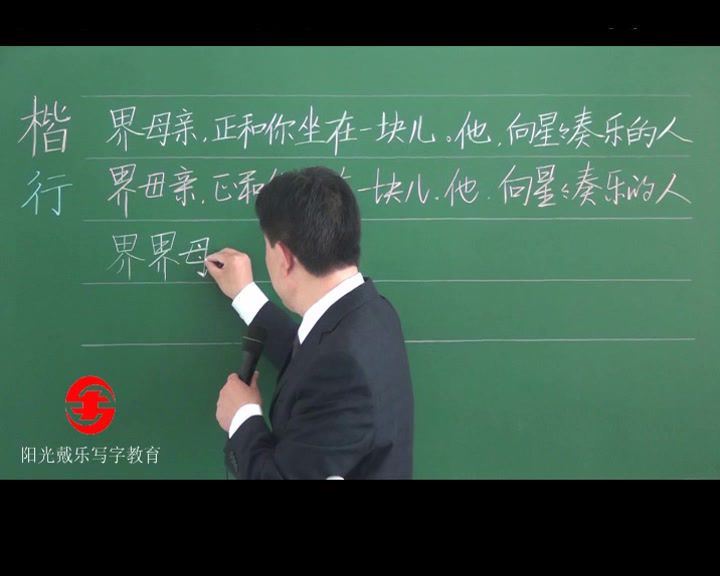 楷 界母亲,正和你坐在一块儿。他,向星々奏乐的人
行 界母亲,正和 在一块儿.他.向星々奏乐的人
界界母
阳光戴乐写字教育